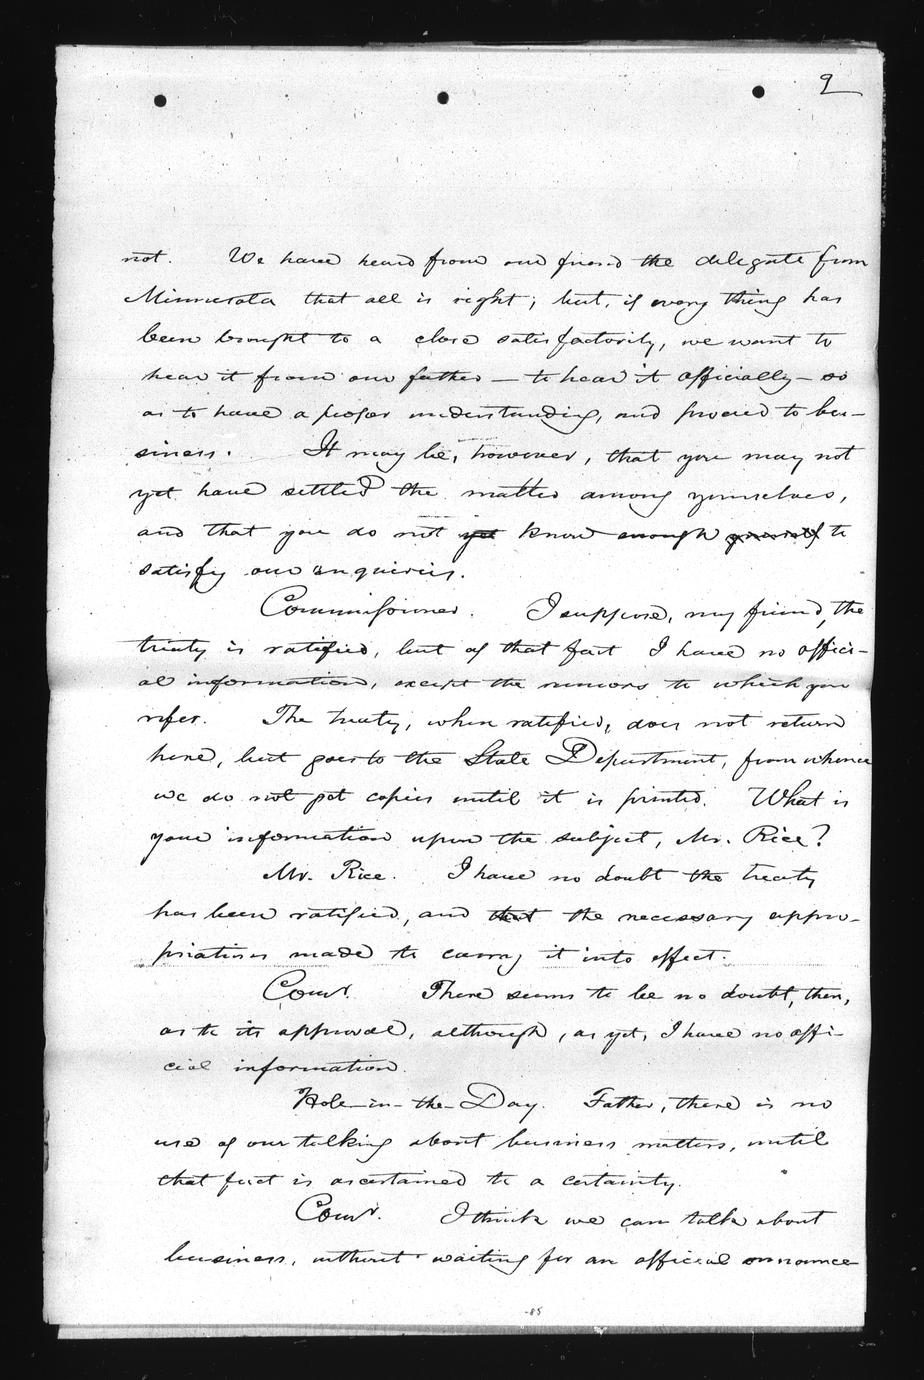 9
not. We have heard from our friend the delegate from
Minnesota that all is right; but, if every thing has
been brought to a close satisfactorily, we want to
hear it from our father — to hear it officially — so
as to have a proper understanding, and proceed to bu-
siness. It may be, however, that you may not
yet have settled the matter among yourselves,
and that you do not yet know enough to
satisfy our enquiries.
Commissioner. I suppose, my friend, the
treaty is ratified, but of that fact I have no offici-
al information, except the rumors to which you
refer. The treaty, when ratified, does not return
here, but goes to the State Department, from whence
we do not get copies until it is printed. What is
your information upon the subject, Mr. Rice?
Mr. Rice. I have no doubt the treaty
has been ratified, and that the necessary appro-
priations made to carry it into effect.
Comr. There seems to be no doubt, then,
as to its approval, although, as yet, I have no offi-
cial information.
Hole-in-the-Day. Father, there is no
use of our talking about business matters, until
that fact is ascertained to a certainty.
Comr. I think we can talk about
business, without waiting for an official announce
-85